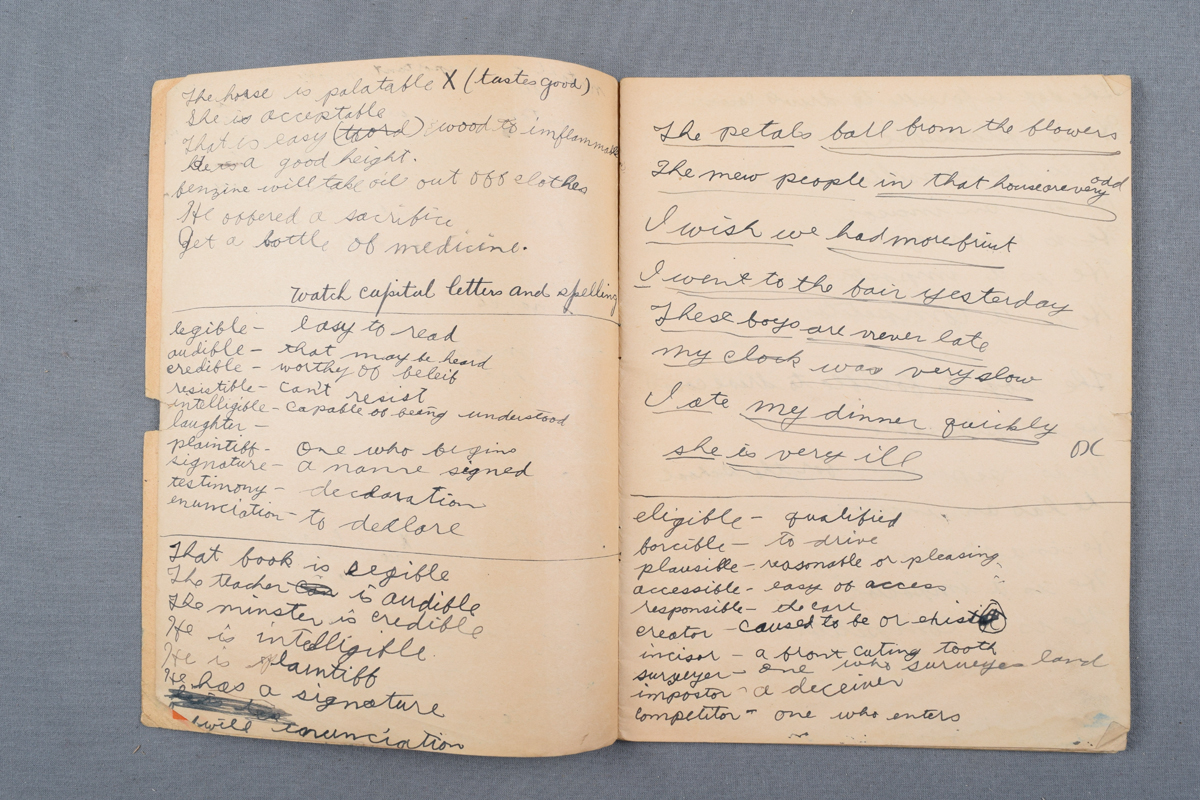 The horse is palatable X (tastes good)
She is acceptable
That is easy (word) wood to inflammable
He is a good height.
benzine will take oil out off clothes
He offered a sacrifice
Get a bottle of medicine.
Watch capital letters and spelling
legible - easy to read
audible - that may be heard
credible - worthy of beleif
resistible - can't resist
intelligible - capable of being understood
laughter -
plaintiff - one who begins
signature - a name signed
testimony - declaration
enunciation - to declare
That book is legible
The teacher is audible
The minster is credible
He is intelligible.
He is plaintiff
He has a signature
will enunciation
The petals fall from the flowers
The new people in that house are very odd
I wish we had more fruit
I went to the fair yesterday
These boys are never late
My clock was very slow
I ate my dinner quickly
she is very ill
OK
eligible - qualified
forcible - to drive
plausible - reasonable or pleasing
accessible - easy of access
responsible - the care
creator - caused to be or exist
incisor - a front cuting tooth
surveyer - one who surveyes land
impostor - a deceiver
competitor - one who enters